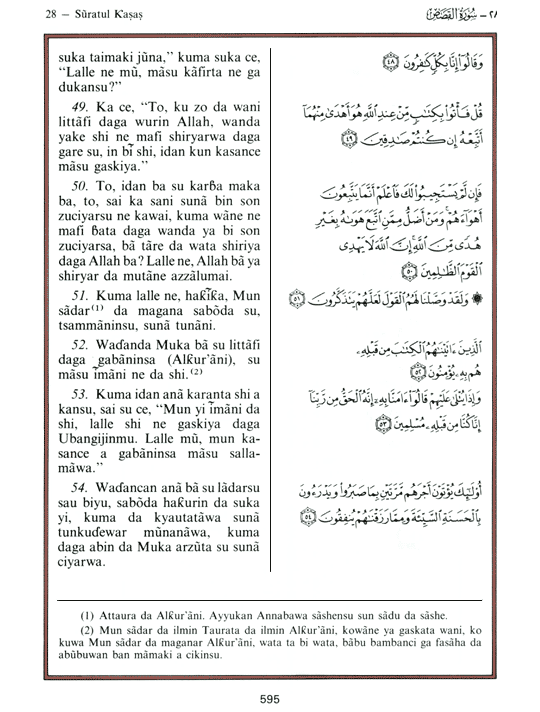 28 – Sūratul Ƙaṣaṣ
٢٨ – سُورَةُ القَصَصِ
suka taimaki jũna,” kuma suka ce,
“Lalle ne mũ, mãsu kãfirta ne ga
dukansu?”
49. Ka ce, “To, ku zo da wani
littãfi daga wurin Allah, wanda
yake shi ne mafi shiryarwa daga
gare su, in bĩ shi, idan kun kasance
mãsu gaskiya.”
50. To, idan ba su karɓa maka
ba, to, sai ka sani sunã bin son
zuciyarsu ne kawai, kuma wãne ne
mafi ɓata daga wanda ya bi son
zuciyarsa, bã tãre da wata shiriya
daga Allah ba? Lalle ne, Allah bã ya
shiryar da mutãne azzãlumai.
51. Kuma lalle ne, haƙĩƙa, Mun
sãdar⁽¹⁾ da magana sabõda su,
tsammãninsu, sunã tunãni.
52. Waɗanda Muka bã su littãfi
daga gabãninsa (Alƙur’ãni), su
mãsu ĩmãni ne da shi.⁽²⁾
53. Kuma idan anã karanta shi a
kansu, sai su ce, “Mun yi ĩmãni da
shi, lalle shi ne gaskiya daga
Ubangijinmu. Lalle mũ, mun ka-
sance a gabãninsa mãsu salla-
mãwa.”
54. Waɗancan anã bã su lãdarsu
sau biyu, sabõda haƙurin da suka
yi, kuma da kyautatãwa sunã
tunkuɗewar mũnanãwa, kuma
daga abin da Muka arzũta su sunã
ciyarwa.
وَقَالُوٓا۟ إِنَّا بِكُلٍّ كَٰفِرُونَ ﴿٤٨﴾
قُلْ فَأْتُوا۟ بِكِتَٰبٍ مِّنْ عِندِ ٱللَّهِ هُوَ أَهْدَىٰ مِنْهُمَآ
أَتَّبِعْهُ إِن كُنتُمْ صَٰدِقِينَ ﴿٤٩﴾
فَإِن لَّمْ يَسْتَجِيبُوا۟ لَكَ فَٱعْلَمْ أَنَّمَا يَتَّبِعُونَ
أَهْوَآءَهُمْ ۚ وَمَنْ أَضَلُّ مِمَّنِ ٱتَّبَعَ هَوَىٰهُ بِغَيْرِ
هُدًى مِّنَ ٱللَّهِ ۚ إِنَّ ٱللَّهَ لَا يَهْدِى
ٱلْقَوْمَ ٱلظَّٰلِمِينَ ﴿٥٠﴾
۞ وَلَقَدْ وَصَّلْنَا لَهُمُ ٱلْقَوْلَ لَعَلَّهُمْ يَتَذَكَّرُونَ ﴿٥١﴾
ٱلَّذِينَ ءَاتَيْنَٰهُمُ ٱلْكِتَٰبَ مِن قَبْلِهِۦ
هُم بِهِۦ يُؤْمِنُونَ ﴿٥٢﴾
وَإِذَا يُتْلَىٰ عَلَيْهِمْ قَالُوٓا۟ ءَامَنَّا بِهِۦٓ إِنَّهُ ٱلْحَقُّ مِن رَّبِّنَآ
إِنَّا كُنَّا مِن قَبْلِهِۦ مُسْلِمِينَ ﴿٥٣﴾
أُو۟لَٰٓئِكَ يُؤْتَوْنَ أَجْرَهُم مَّرَّتَيْنِ بِمَا صَبَرُوا۟ وَيَدْرَءُونَ
بِٱلْحَسَنَةِ ٱلسَّيِّئَةَ وَمِمَّا رَزَقْنَٰهُمْ يُنفِقُونَ ﴿٥٤﴾
(1) Attaura da Alƙur’ãni. Ayyukan Annabawa sãshensu sun sãdu da sãshe.
(2) Mun sãdar da ilmin Taurata da ilmin Alƙur’ãni, kowãne ya gaskata wani, ko
kuwa Mun sãdar da maganar Alƙur’ãni, wata ta bi wata, bãbu bambanci ga fasãha da
abũbuwan ban mãmaki a cikinsu.
595